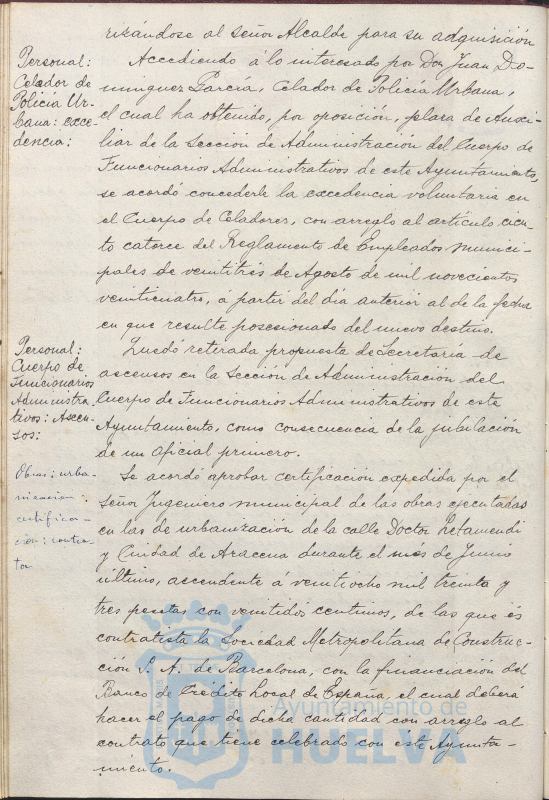 rizándose al señor Alcalde para su adquisición
Personal:
Celador de
Policía Ur-
bana: exce-
dencia:
Accediendo á lo interesado por Don Juan Do-
minguez García, Celador de Policía Urbana,
el cual ha obtenido, por oposición, plaza de Auxi-
liar de la Sección de Administración del Cuerpo de
Funcionarios Administrativos de este Ayuntamiento,
se acordó concederle la excedencia voluntaria en
el Cuerpo de Celadores, con arreglo al artículo cien-
to catorce del Reglamento de Empleados munici-
pales de veintitrés de Agosto de mil novecientos
veinticuatro, á partir del día anterior al de la fecha
en que resulte posesionado del nuevo destino.
Personal:
Cuerpo de
Funcionarios
Administra-
tivos: Ascen-
sos:
Quedó retirada propuesta de Secretaría de
ascensos en la Sección de Administración del
Cuerpo de Funcionarios Administrativos de este
Ayuntamiento, como consecuencia de la jubilación
de un Oficial primero.
Obras: urba-
nización:
certificac-
ción: contra-
ta
Se acordó aprobar certificación expedida por el
señor Ingeniero municipal de las obras ejecutadas
en las de urbanización de la calle Doctor Letamendi
y Ciudad de Aracena durante el mes de Junio
último, ascendente á veintiocho mil treinta y
tres pesetas con veintidos centimos, de las que és
contratista la Sociedad Metropolitana de Construc-
ción S. A. de Barcelona, con la financiación del
Banco de Crédito Local de España, el cual deberá
hacer el pago de dicha cantidad con arreglo al
contrato que tiene celebrado con este Ayunta-
miento.
Ayuntamiento de
HUELVA